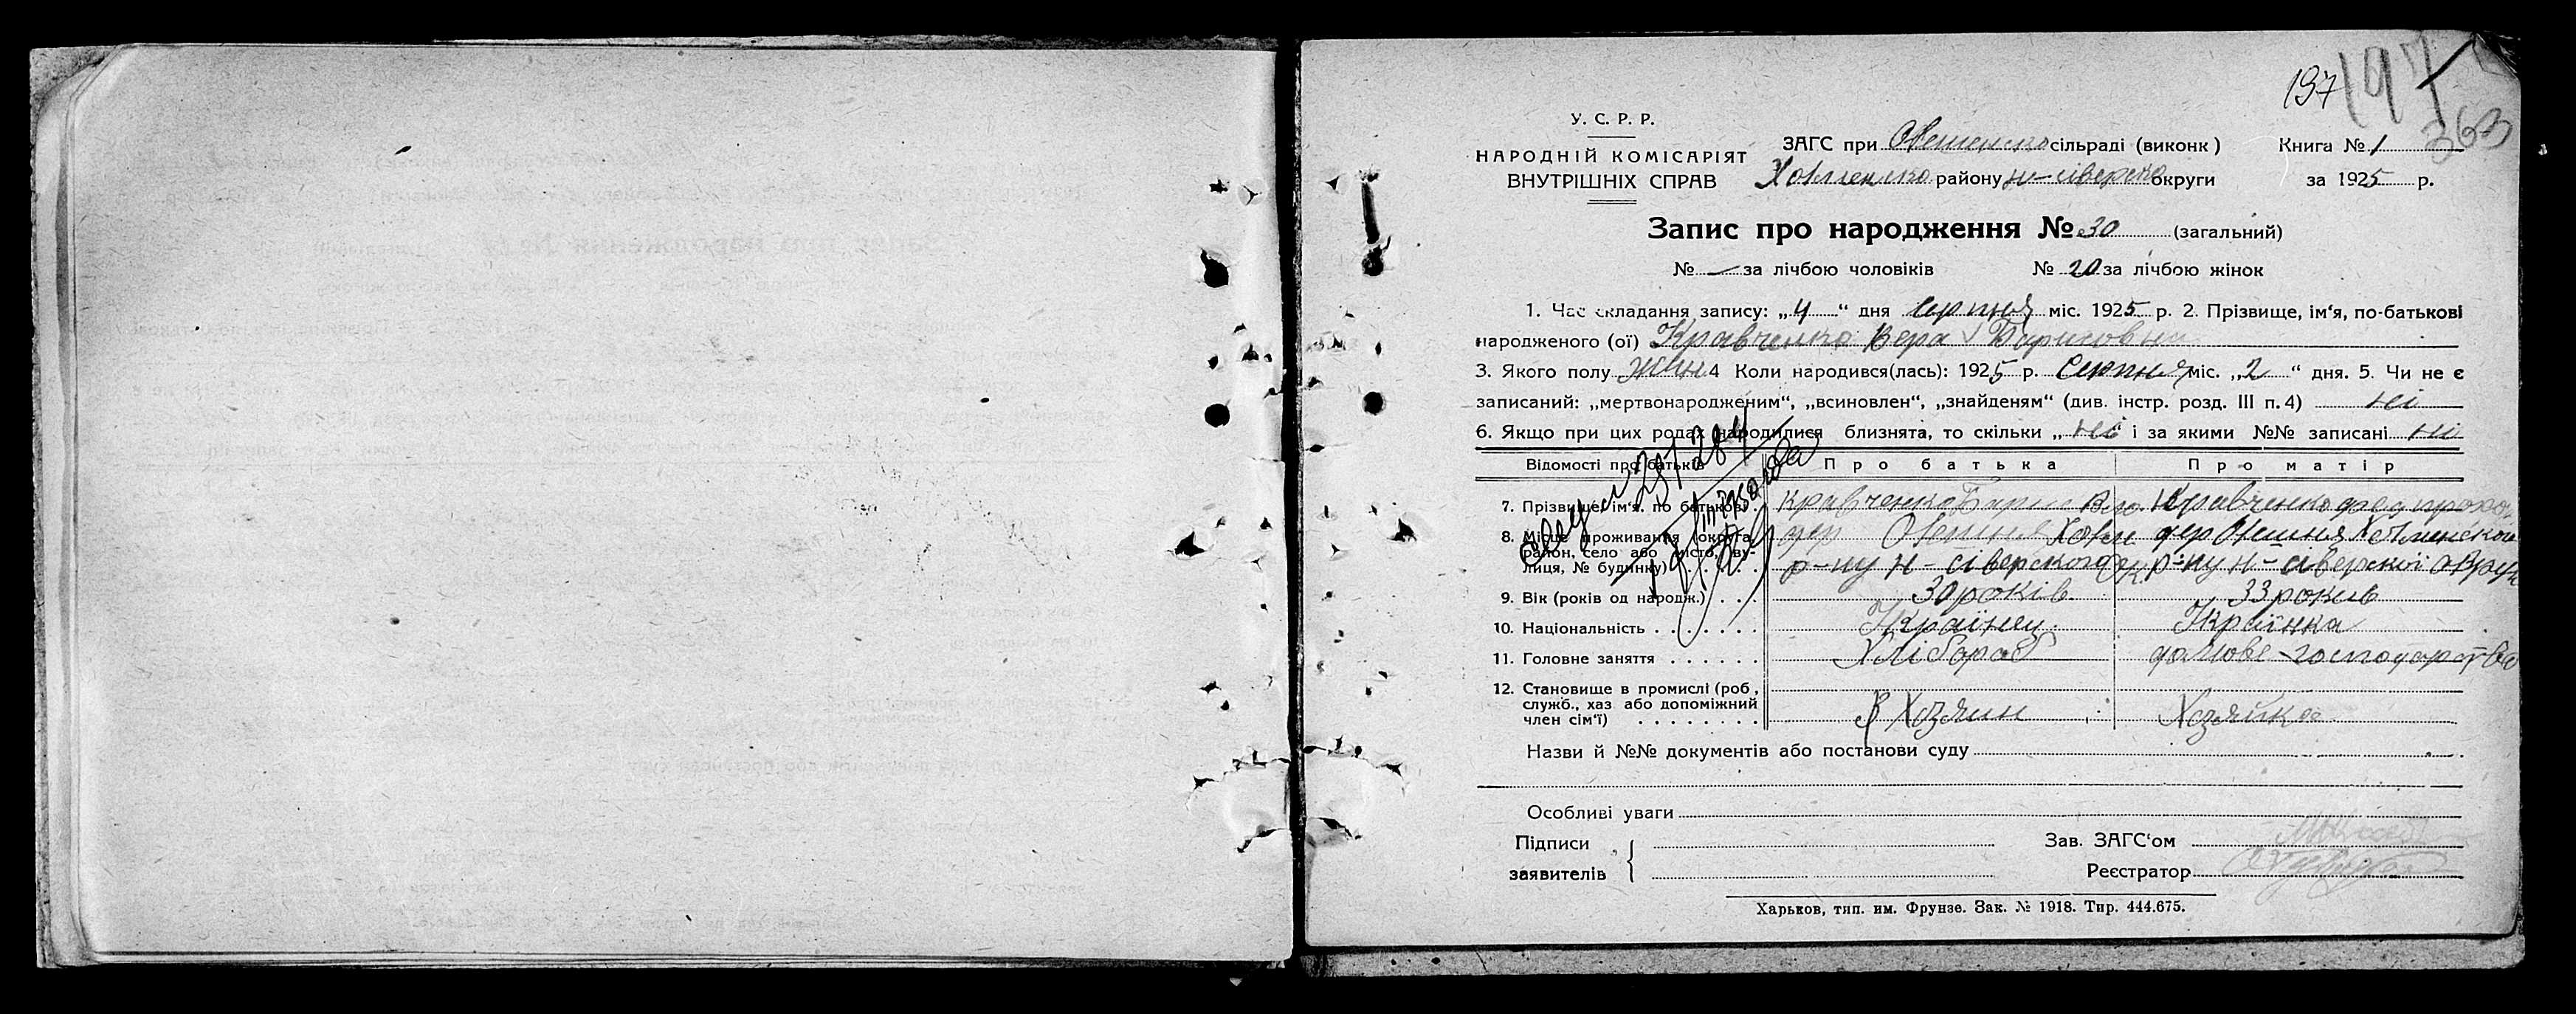 197
197
363
У. С. Р. Р.
НАРОДНІЙ КОМІСАРІЯТ
ВНУТРІШНІХ СПРАВ
ЗАГС при сільраді (виконк)
району н-сіверско округи
Книга № 1
за 1925 р.
Запис про народження № 30 (загальний)
№ — за лічбою чоловіків № 20 за лічбою жінок
1. Час складання запису: „4“ дня серпня міс. 1925 р. 2. Прізвище, ім‘я, по-батькові
народженого (ої) Кравченко Вера Барисовна
3. Якого полу жин 4 Коли народився(лась): 1925 р. Серпня міс. „2“ дня. 5. Чи не є
записаний: „мертвонародженим“, „всиновлен“, „знайденям“ (див. інстр. розд. III п. 4) ні
6. Якщо при цих родах народилися близнята, то скільки „ні“ і за якими №№ записані ні
Відомості про батьків Про батька Про матір
7. Прізвище, ім‘я, по батькові Кравченко Барис Кравченко
8. Місце проживання (округа, район, село або місто, ву-
лиця, № будинку) дер р-ну н-сіверского дер р-ну н-сіверскоі
9. Вік (років од народж.) 30 років 33 років
10. Національність Украінец Украінка
11. Головне заняття Хлібораб домове господарство
12. Становище в промислі (роб.,
служб., хаз або допоміжний
член сім‘ї) Хозяин Хозяйка
Назви й №№ документів або постанови суду
Особливі уваги
Підписи
заявителів
Зав. ЗАГС‘ом
Реєстратор
Харьков, тип. им. Фрунзе. Зак. № 1918. Тир. 444.675.